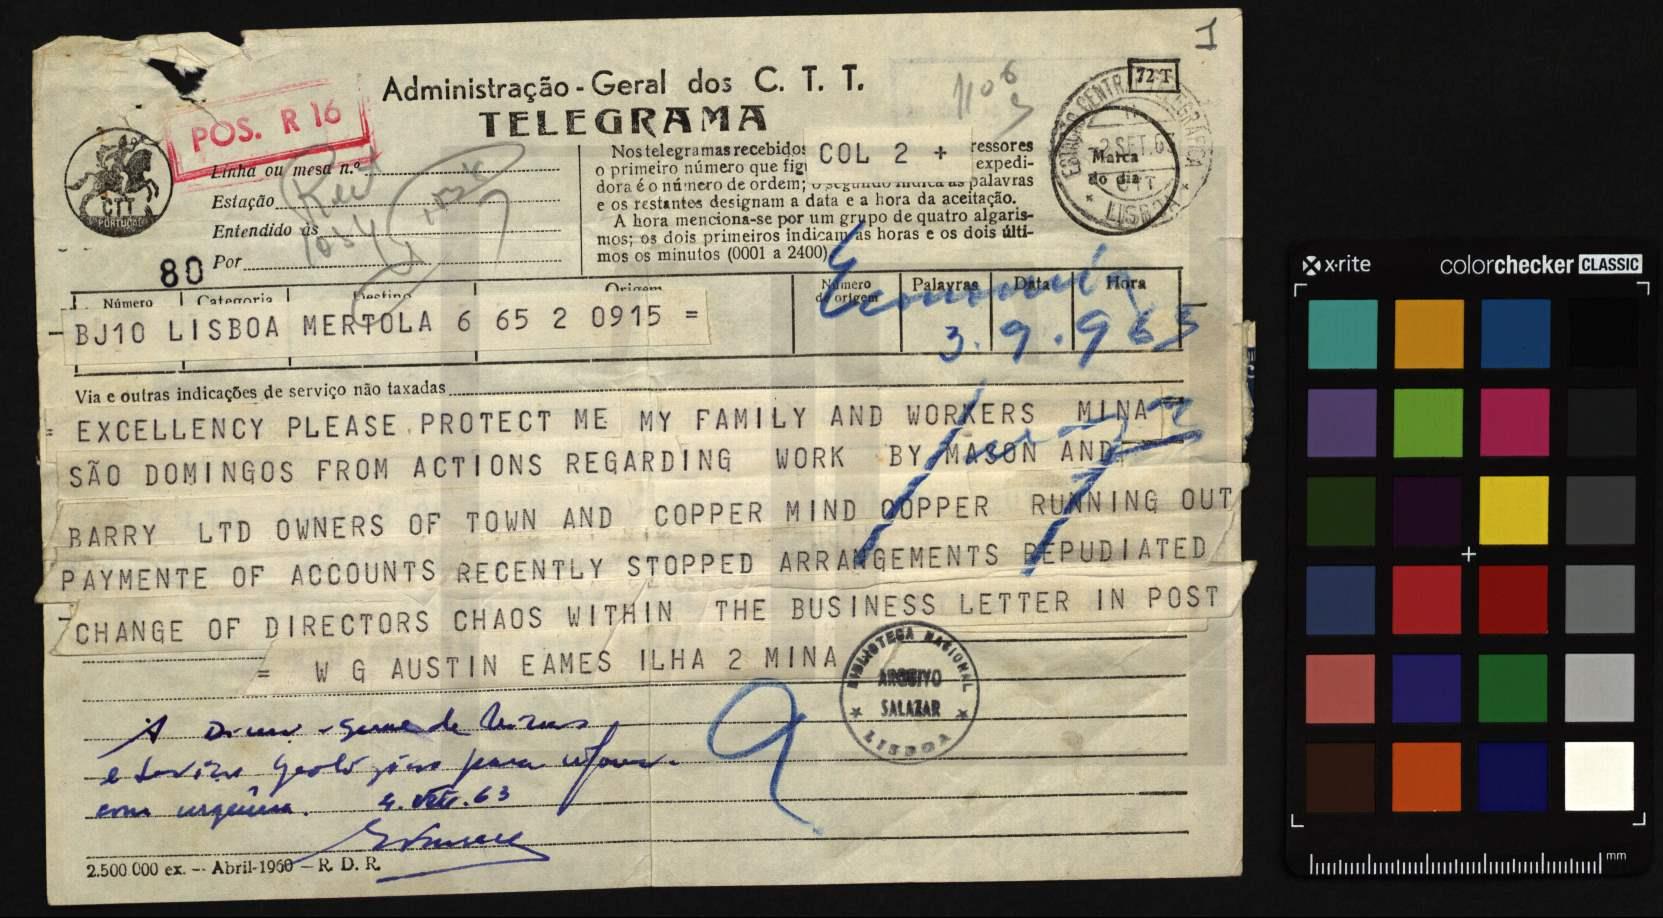 1
Administração-Geral dos C. T. T.
72-T
TELEGRAMA
POS. R 16
1106
ESTAÇÃO CENTRAL TELEGRÁFICA
2 SET. 6
Marca
do dia
CTT
* LISBOA *
CTT
PORTUGAL
Linha ou mesa n.º
Estação
Entendido às
1034
80 Por
Nos telegramas recebidos COL 2 + ressores
o primeiro número que fig expedi-
dora é o número de ordem; o segundo indica as palavras
e os restantes designam a data e a hora da aceitação.
A hora menciona-se por um grupo de quatro algaris-
mos; os dois primeiros indicam as horas e os dois últi-
mos os minutos (0001 a 2400).
Número Categoria Destino Origem Número de origem Palavras Data Hora
BJ10 LISBOA MERTOLA 6 65 2 0915 =
Economia
3.9.963
Via e outras indicações de serviço não taxadas
= EXCELLENCY PLEASE PROTECT ME MY FAMILY AND WORKERS MINA
SÃO DOMINGOS FROM ACTIONS REGARDING WORK BY MASON AND
BARRY LTD OWNERS OF TOWN AND COPPER MIND COPPER RUNNING OUT
PAYMENTE OF ACCOUNTS RECENTLY STOPPED ARRANGEMENTS REPUDIATED
CHANGE OF DIRECTORS CHAOS WITHIN THE BUSINESS LETTER IN POST
= W G AUSTIN EAMES ILHA 2 MINA
BIBLIOTECA NACIONAL
ARQUIVO
SALAZAR
* LISBOA *
A Direc. Geral de Minas
e Serviços Geológicos para informar
com urgência. 4. Set. 63
2.500 000 ex. -- Abril-1960 — R. D. R.
x-rite
colorchecker CLASSIC
mm